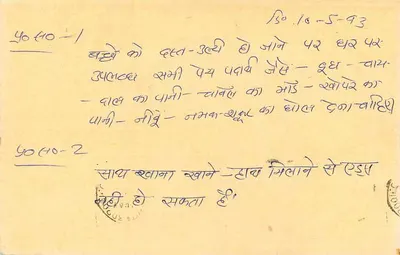 दि० 10-5-93
प्र० स०-1
बच्चे को दस्त-उल्टी हो जाने पर घर पर
उपलब्ध सभी पेय पदार्थ जैसे - दूध - चाय
- दाल का पानी - चावल का मांड - खोपरे का
पानी - नींबू - नमक-शक्कर का घोल देना चाहिए
प्र० स०-2
साथ खाना खाने - हाथ मिलाने से एड्स
नहीं हो सकता है।